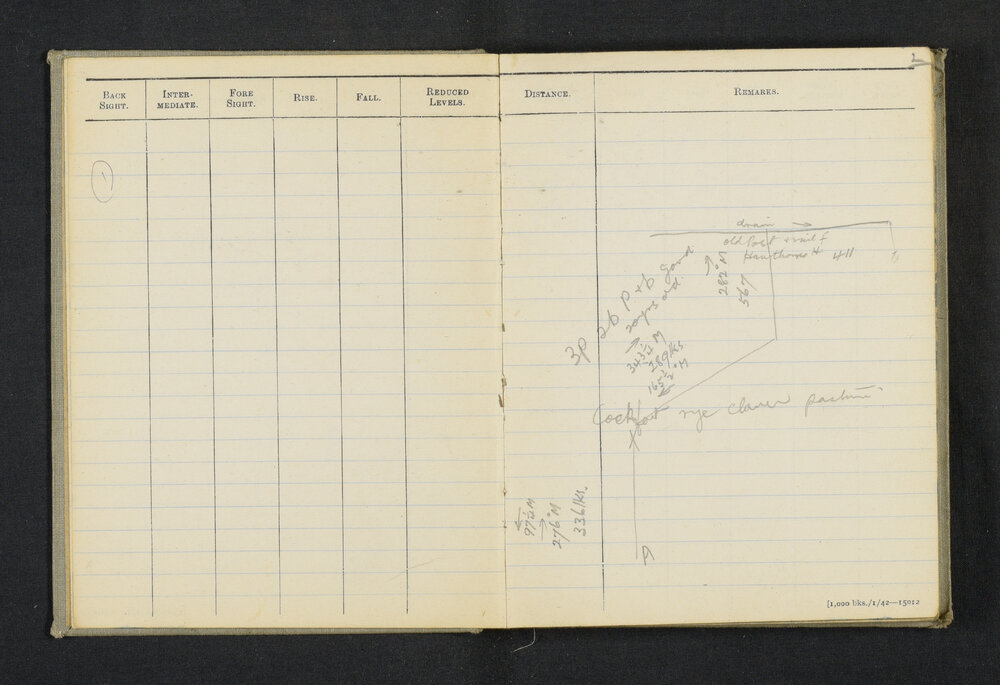 BACK SIGHT.
INTER-MEDIATE.
FORE SIGHT.
RISE.
FALL.
REDUCED LEVELS.
DISTANCE.
REMARKS.
1
2
drain →
old Post + rail f
Hawthorne H 4H
282° M
567
3p 2b P + b good
20 yrs old.
343½ M
289 lks
165½° M
Cocksfoot rye clover pasture
97½ M
276° M
336 lks.
A
[1,000 bks./1/42—15012